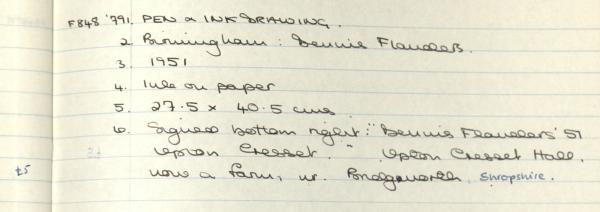 F848 '79 1. PEN & INK DRAWING.
2. Birmingham : Dennis Flanders.
3. 1951
4. Ink on paper
5. 27.5 x 40.5 cms.
6. Signed bottom right : "Dennis Flanders '51
Upton Cresset." Upton Cresset Hall,
£5 now a farm, nr. Bridgnorth, Shropshire.